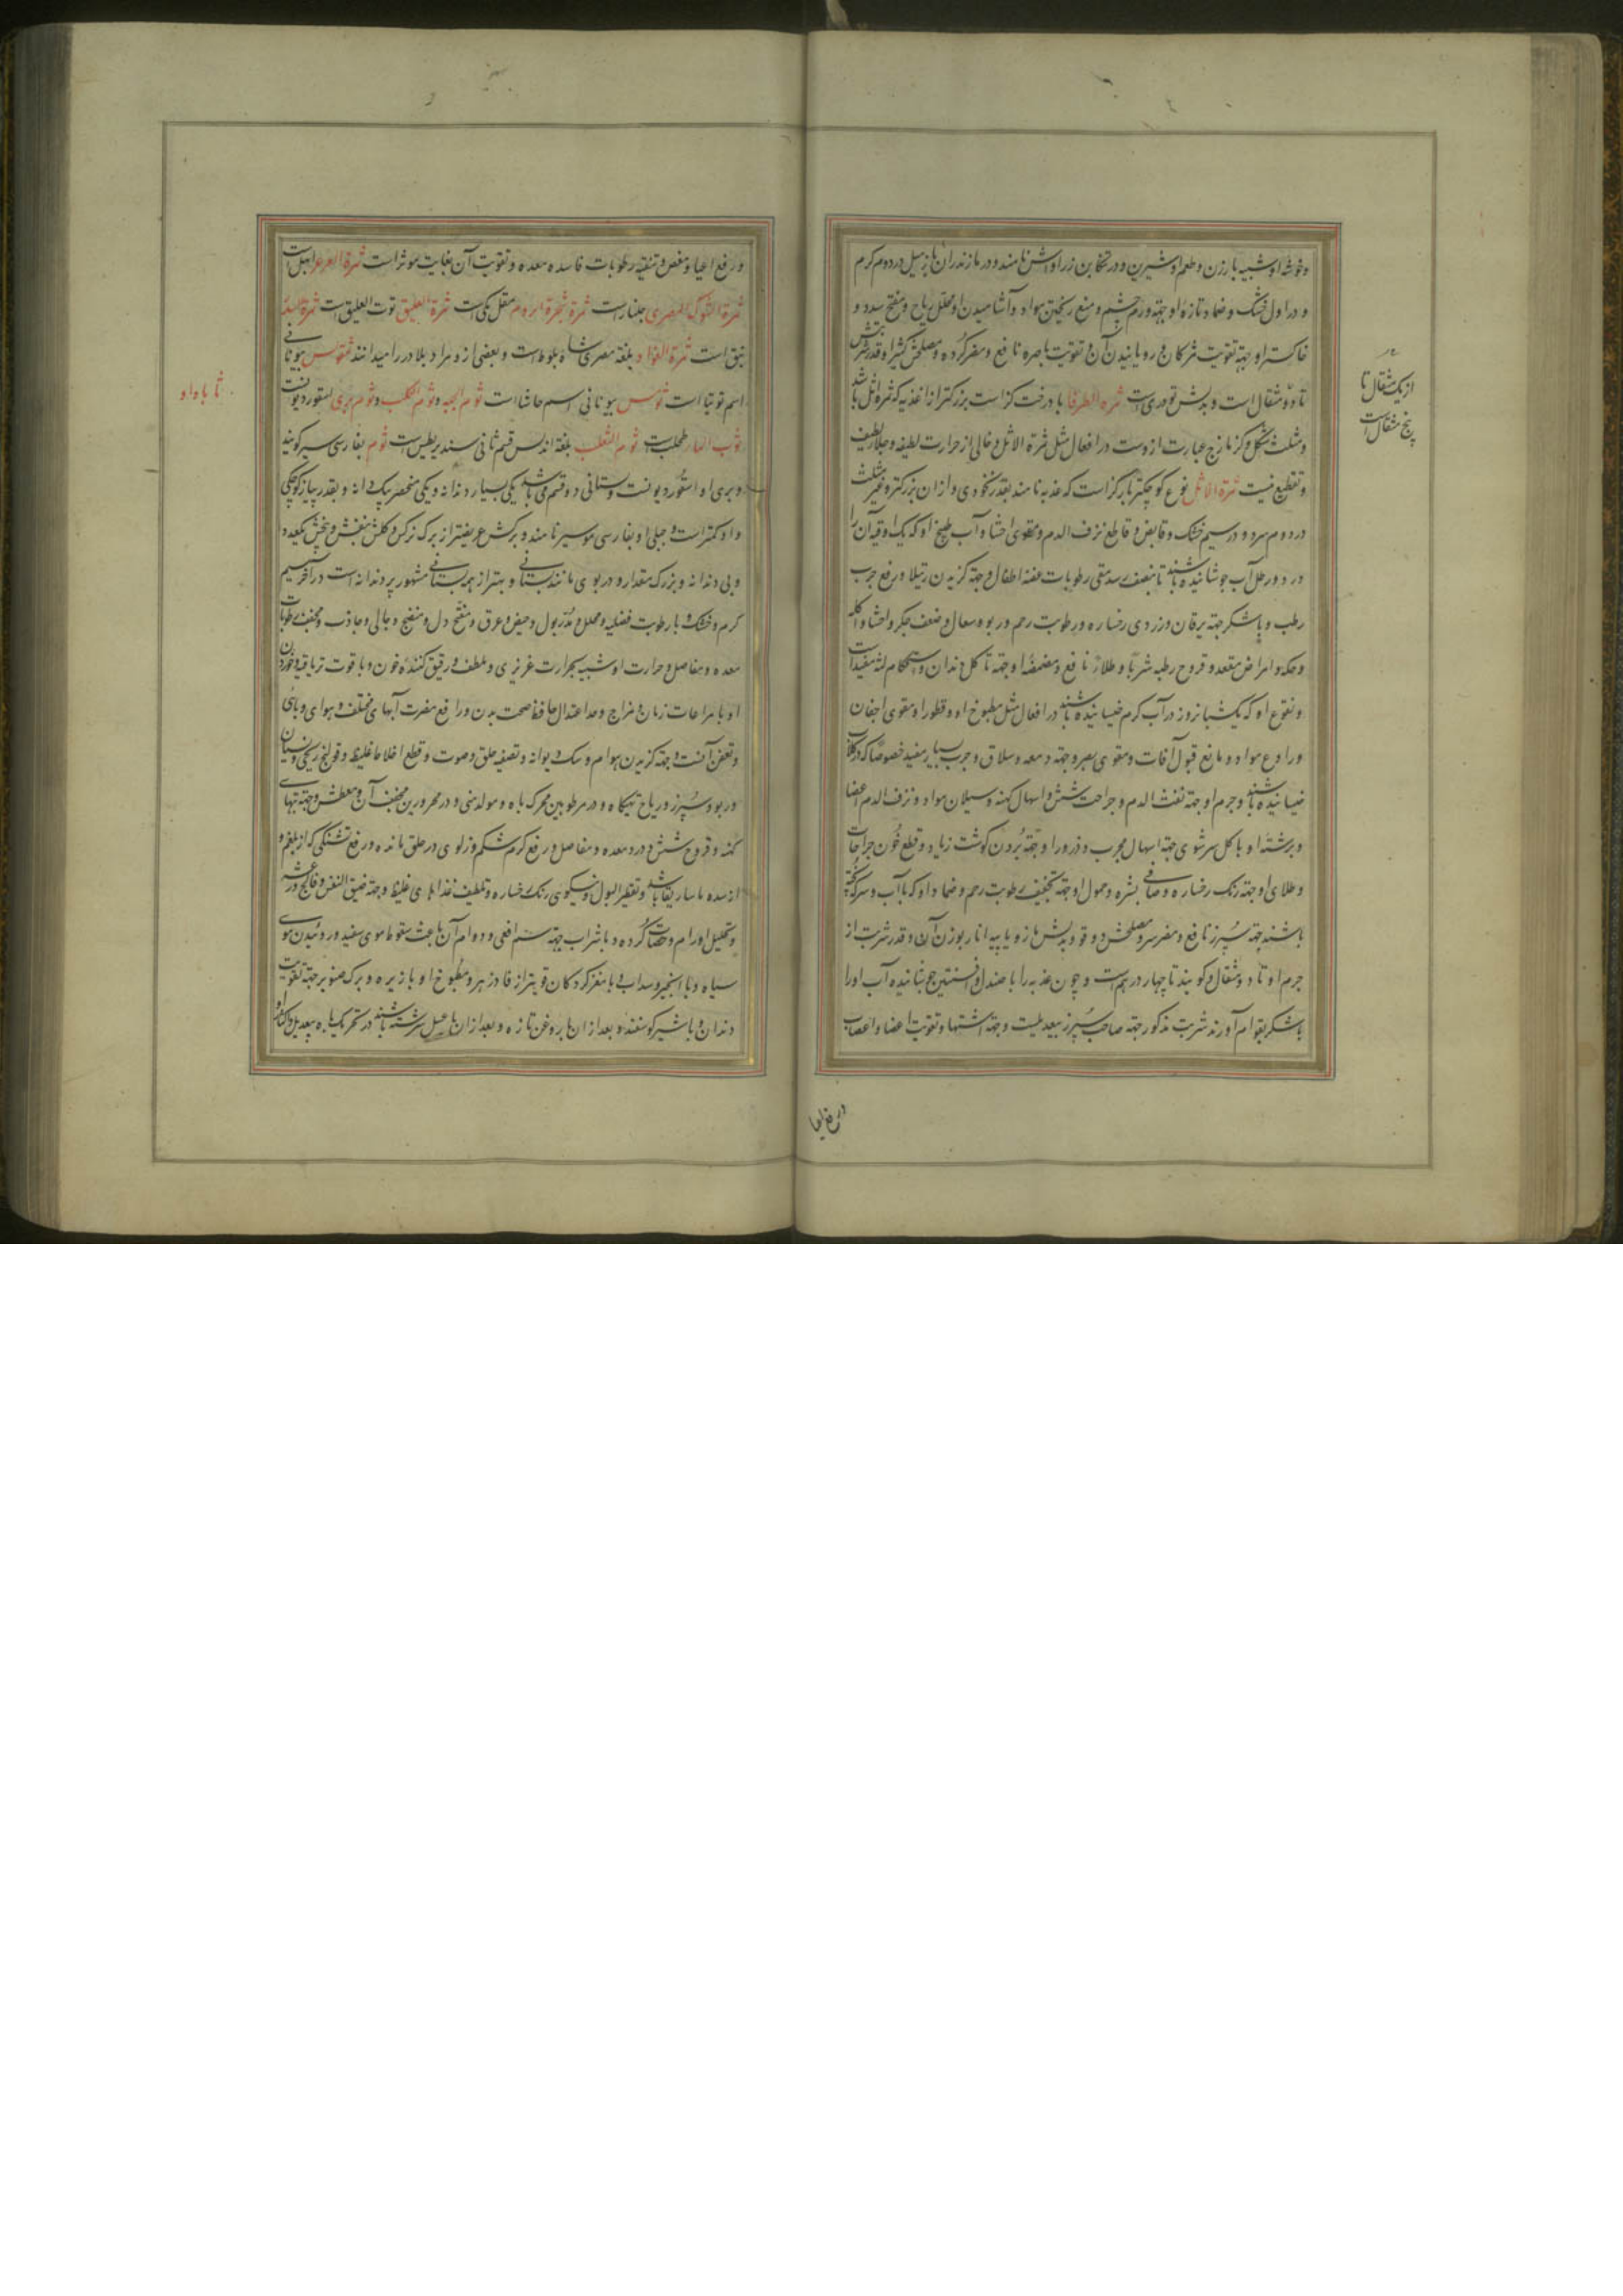 و خوشه او شبیه بارزن و طعم او شیرین و در تنکابن زراوش نامند و در مازندران در دوم گرم
و در اول خشک و ضماد تازه او جهة ورم چشم و منع ریختن مواد و آشامیدن او محلل ریاح و مفتح سدد و
خاکستر او جهة تقویت مژگان و رویانیدن آن و تقویت باصره نافع و مضر گرده و مصلحش کتیرا و قدر شربتش
تا دو مثقال است و بدلش تودری است ثمرة الطرفا بار درخت گز است بزرگتر از عذبه که ثمره اثل باشد
و مثلث شکل و گزمازج عبارت ازوست در افعال مثل ثمرة الاثل و خالی از حرارت لطیفه و جلا لطیف
و تقطیع نیست ثمرة الاثل نوع کوچکتر بار گز است که عذبه نامند بقدر نخودی و از ان بزرگتر و غیر مثلث
در دوم سرد و در سیم خشک و قابض و قاطع نزف الدم و مقوی احشا و آب طبیخ او که یک اوقیه آن را
در دو رطل آب جوشانیده باشند تا بنصف رسد منقی رطوبات عفنه اطفال و جهة گزیدن رتیلا و رفع جرب
رطب و با شکر جهة یرقان و زردی رخساره و رطوبت رحم و ربو و سعال و ضعف جگر و احشا و آکله
و حکه و امراض مقعد و قروح رطبه شربا و طلاءً نافع و مضمضه او جهة تاکل دندان و استحکام لثه مفیدات
و نقوع او که یک شبانروز در آب گرم خیسانیده باشند در افعال مثل مطبوخ او و قطور او مقوی اجفان
و رادع مواد و مانع قبول آفات و مقوی بصر و جهة دمعه و سلاق و جرب بسیار مفید خصوصا که در گلاب
خیسانیده باشند و جرم او جهة نفث الدم و جراحت شش و اسهال کهنه و سیلان مواد و نزف الدم اعضا
و برشته او با گل سرشوی جهة اسهال مجرب و ذرور او جهة بردن گوشت زیاد و قطع خون جراحات
و طلای او جهة رنگ رخساره و صافی بشره و حمول او جهة تجفیف رطوبت رحم و ضماد او که با آب و سرکه پخته
باشند جهة سپرز نافع و مضر سر و مصلحش دوقو و بدلش مازو یا پیه انار بوزن آن و قدر شربت از
جرم او تا دو مثقال و گویند تا چهار درهم است و چون عذبه را با صندل و افسنتین جوشانیده آب او را
با شکر بقوام آورند شربت مذکور جهة صاحب سپرز بیعدیلست و جهة اشتها و تقویت اعضا و اعصاب
از یک مثقال تا
پنج مثقال است
و رفع اعیا و مغص و تنقیه رطوبات فاسده معده و تقویت آن بغایت موثر است ثمرة العرعر ابهل است
ثمرة الشوکة المصری جلنار است ثمرة شجرة الدوم مقل مکی است ثمرة العلیق توت العلیق است ثمرة السدر
نبق است ثمرة الفؤاد بلغة مصری شاه بلوط است و بعضی ازو مراد بلادر را میدانند بیونانی
اسم توتیا است ثومس بیونانی اسم حاشا است ثوم الحیه و ثوم الکلب و ثوم بری اسقوردیونست
ثوب الماء طحلب است ثوم الثعلب بلغة اندلس قسم ثانی سندریطیس است ثوم بفارسی سیر گویند
و بری او اسقوردیونست و بستانی دو قسم می باشد یکی بسیار دندانه و یکی منحصر بیک دانه و بقدر پیاز کوچکی
و او کمتر است و جبلی او بفارسی موسیر نامند و برگش عریضتر از برگ نرگس و گلش بنفش و بیخش یکعدد
و بی دندانه و بزرگ مقدار و در بوی مانند بستانی و بهتر از همه بستانی مشهور پر دندانه است در آخر سیم
گرم و خشک و با رطوبت فضلیه و محلل و مدر بول و حیض و عرق و مفتح و منضج و جالی و جاذب و مجفف رطوبات
معده و مفاصل و حرارت او شبیه بحرارت غریزی و ملطف و رقیق کننده خون و با قوت تریاقیه و خوردن
او با مراعات زمان و مزاج و حد اعتدال حافظ صحت بدن و رافع مضرت آبهای مختلف و هوای وبائی
و تعفن آنست و جهة گزیدن هوام و سگ دیوانه و تصفیه حلق و صوت و قطع اخلاط غلیظ و قولنج ریحی و نسیان
و ربو و سپرز و ریاح تهیگاه و در مرطوبین محرک باه و مولد منی و در محرورین مجفف آن و معطش و جهة تبهای
کهنه و قروح شش و درد معده و مفاصل و رفع کرم شکم و زلوی در حلق مانده و رفع تشنگی که از بلغم و
از سده ماساریقا باشد و تقطیر البول و نیکوی رنگ رخساره و تلطیف غذاهای غلیظ و جهة ضیق النفس و فالج و رعشه
و تحلیل اورام و حصات گرده و با شراب جهة سم افعی و دوام آن باعث سقوط موی سفید و روئیدن موی
سیاه و با انجیر و سداب و با مغز گردکان قویتر از فادزهر و مطبوخ او با زیره و برگ صنوبر جهة تقویت
دندان و با شیر گوسفند و بعد ازان با روغن تازه و بعد ازان با عسل سرشته باشند در تحریک باه بیعدیل و اکثار او
ثا با واو